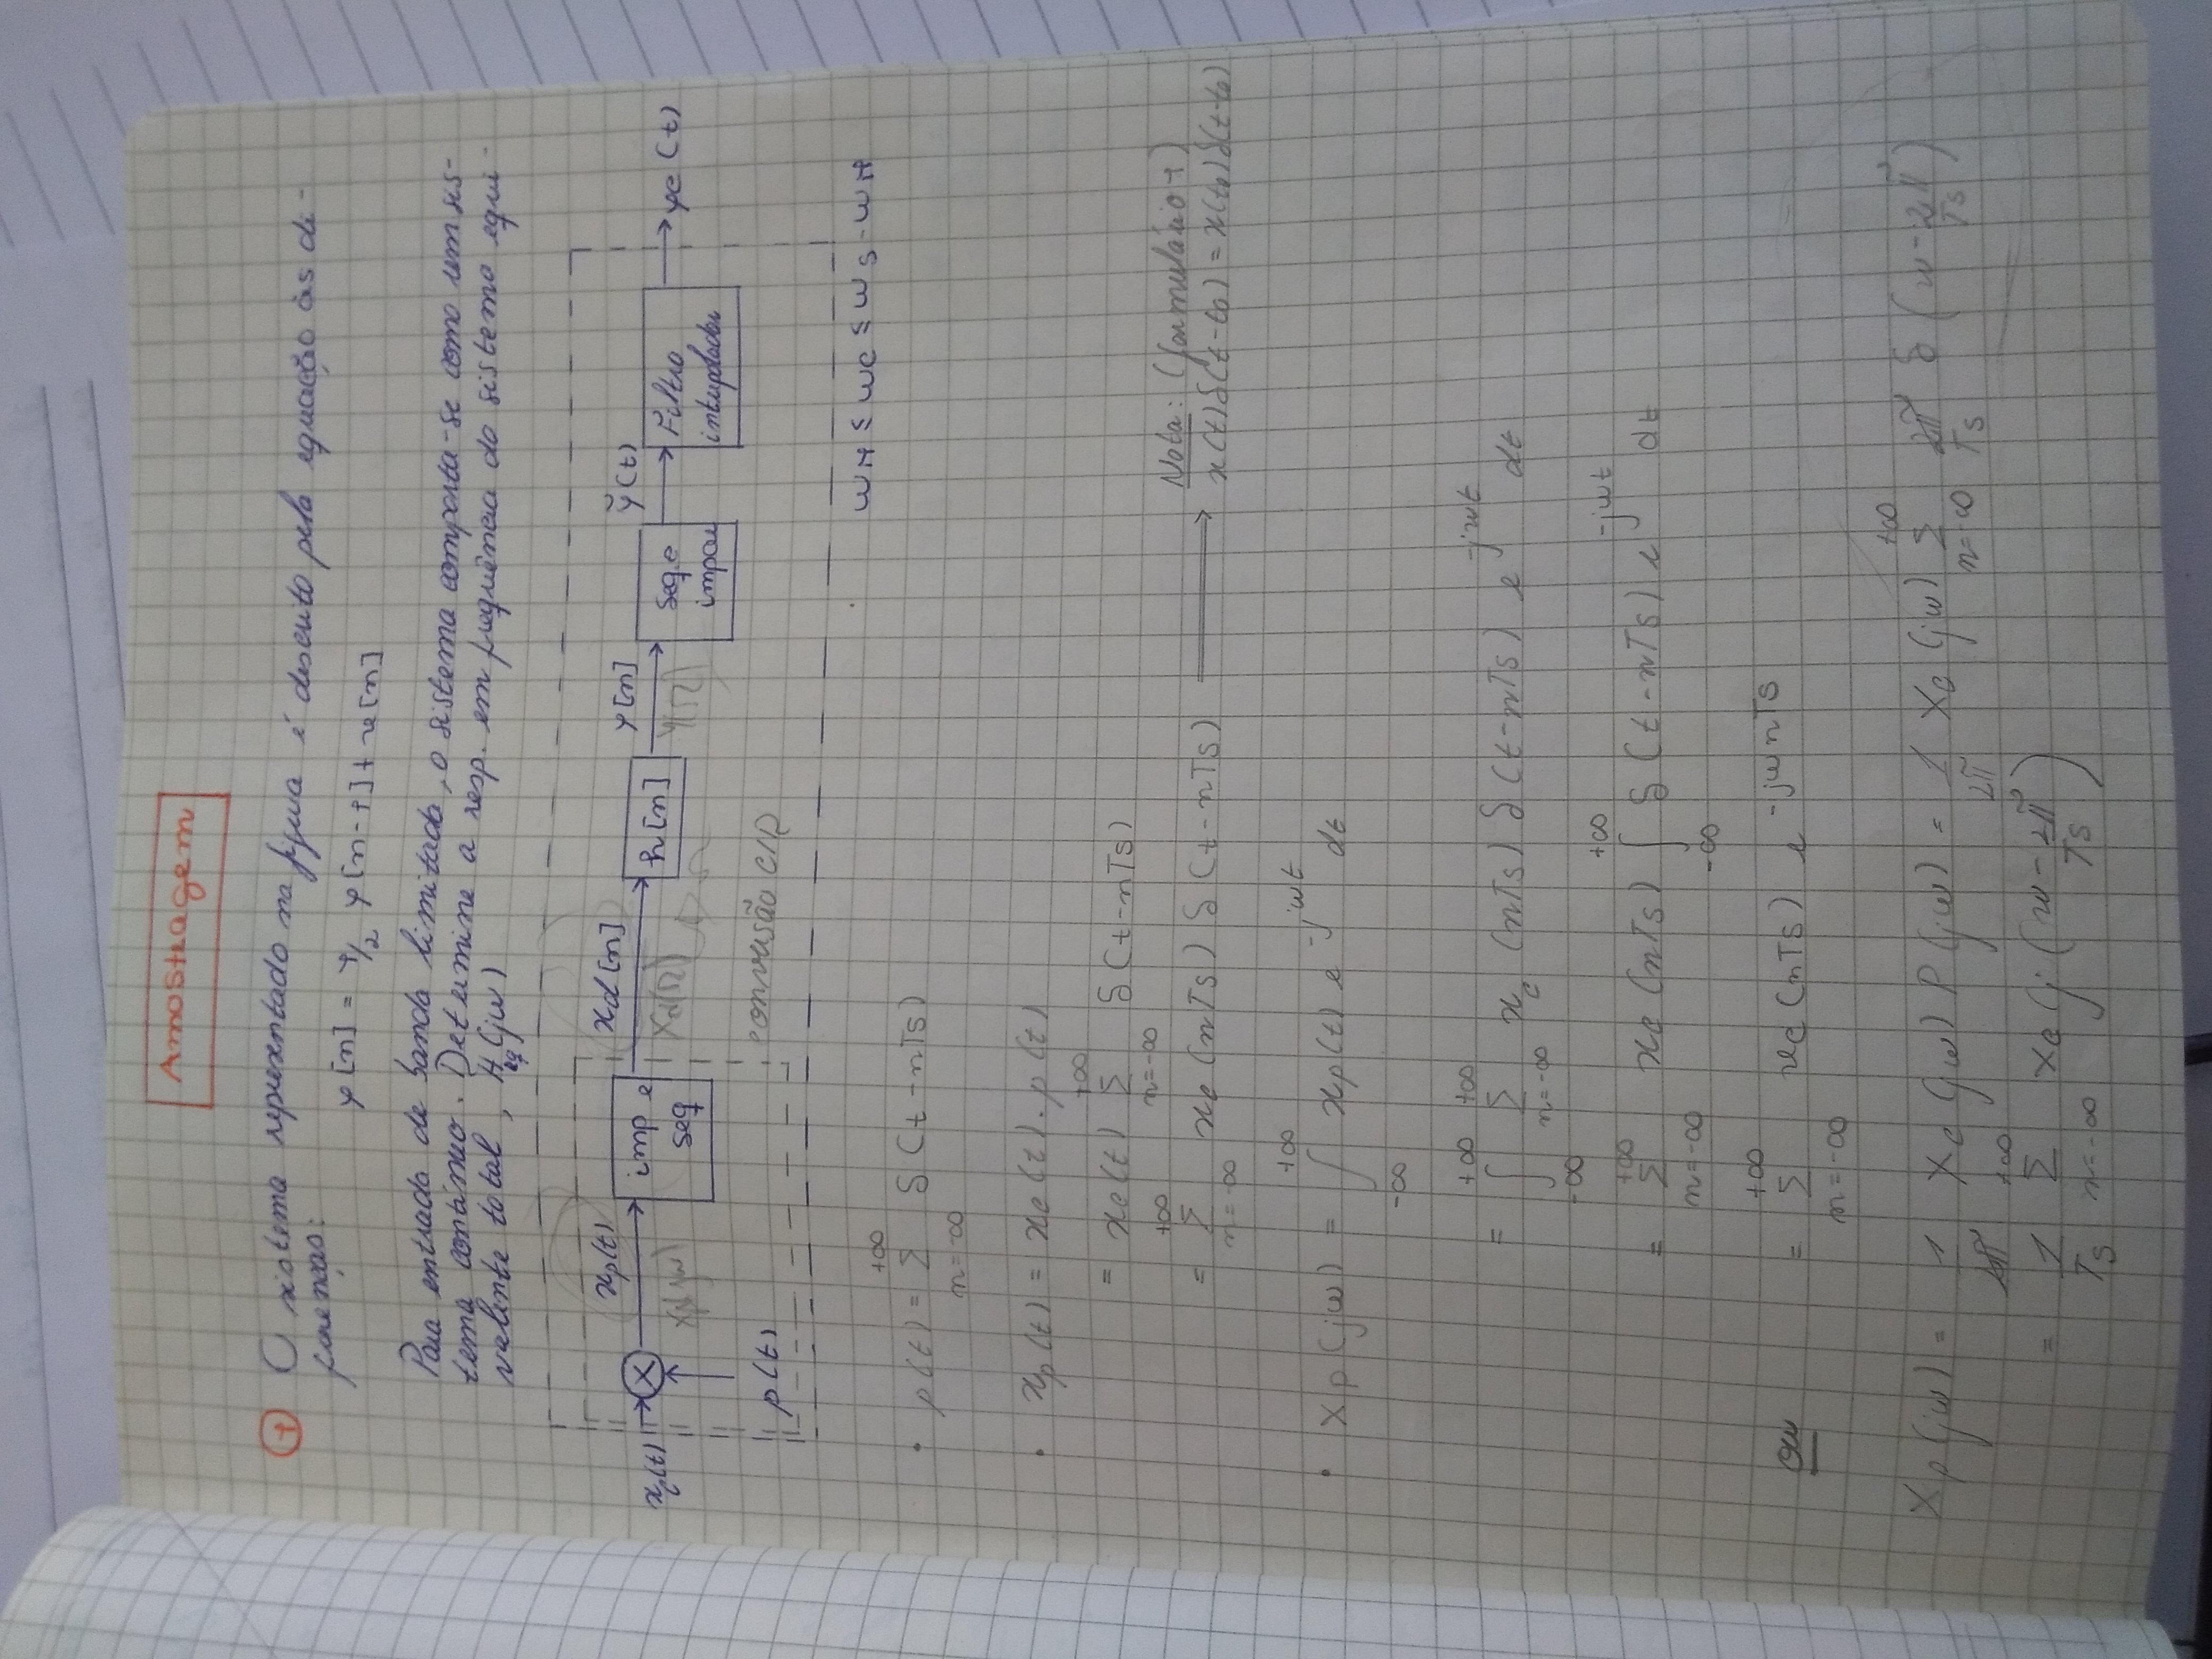 Amostragem
1 O sistema representado na figura é descrito pela equação às di-
ferenças:
y[n] = 1/2 y[n-1] + x[n]
Para entrada de banda limitada, o sistema comporta-se como um sis-
tema contínuo. Determine a resp. em frequência do sistema equi-
valente total, Heq(jω)
xp(t) xd[n] y[n] ỹ(t)
xc(t) × imp e seq h[n] seq e impar Filtro interpolador yc(t)
Xp(jω) Xd(Ω) Y(Ω)
p(t) conversão C/D
ωM ≤ ωc ≤ ωs - ωM
• p(t) = +∞ Σ n=-∞ δ(t-nTs)
• xp(t) = xc(t) . p(t)
= xc(t) +∞ Σ n=-∞ δ(t-nTs)
= +∞ Σ n=-∞ xc(nTs) δ(t-nTs) ⟹ Nota: (formulário 1)
x(t)δ(t-t0) = x(t0)δ(t-t0)
• Xp(jω) = +∞ ∫ -∞ xp(t) e^-jωt dt
= +∞ ∫ -∞ +∞ Σ n=-∞ xc(nTs) δ(t-nTs) e^-jωt dt
= +∞ Σ n=-∞ xc(nTs) +∞ ∫ -∞ δ(t-nTs) e^-jωt dt
ou = +∞ Σ n=-∞ xc(nTs) e^-jωnTs
Xp(jω) = 1/2π Xc(jω) P(jω) = 1/2π Xc(jω) +∞ Σ n=-∞ 2π/Ts δ(ω-2π/Ts)
= 1/Ts +∞ Σ n=-∞ Xc(j(ω-2π/Ts)